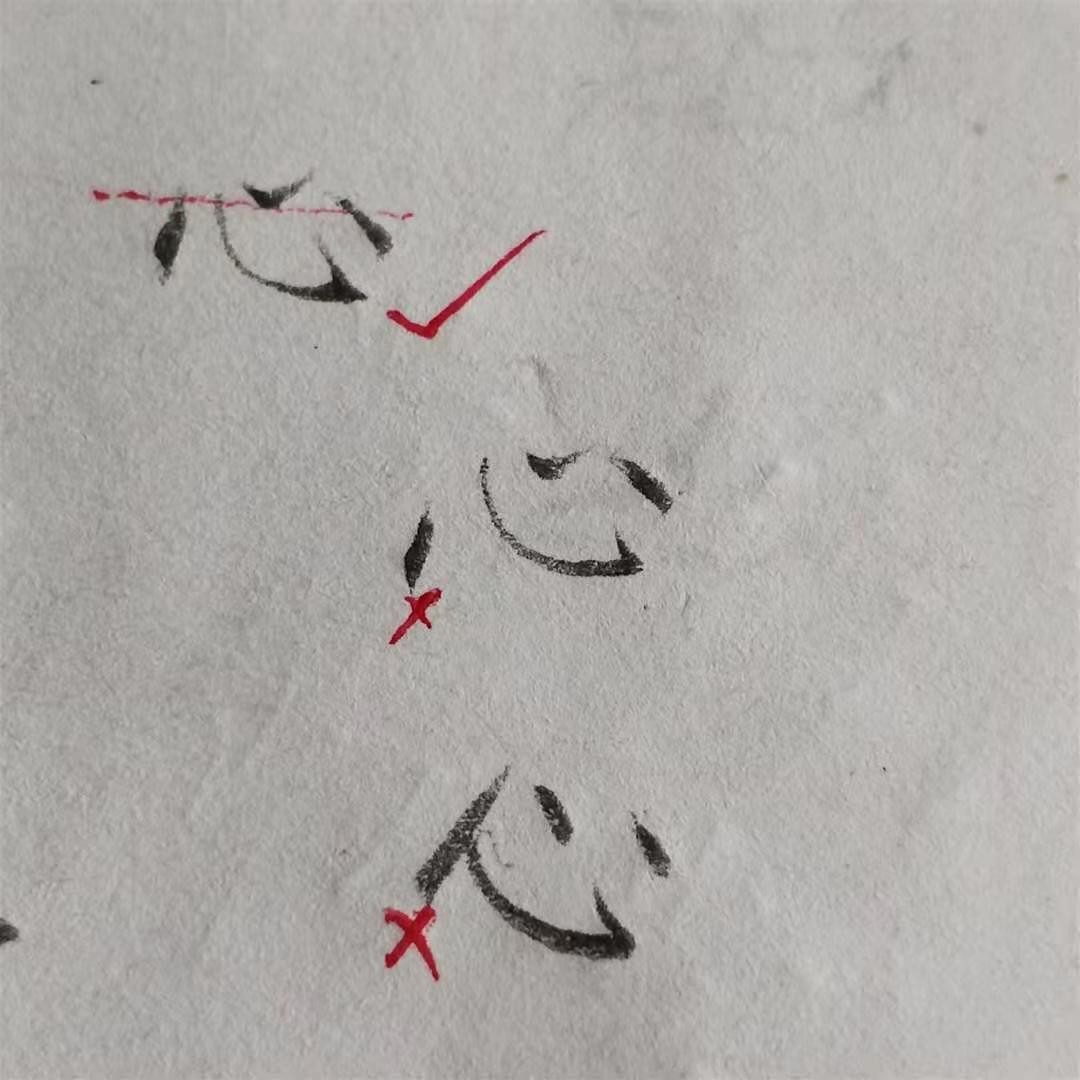 心
心
心